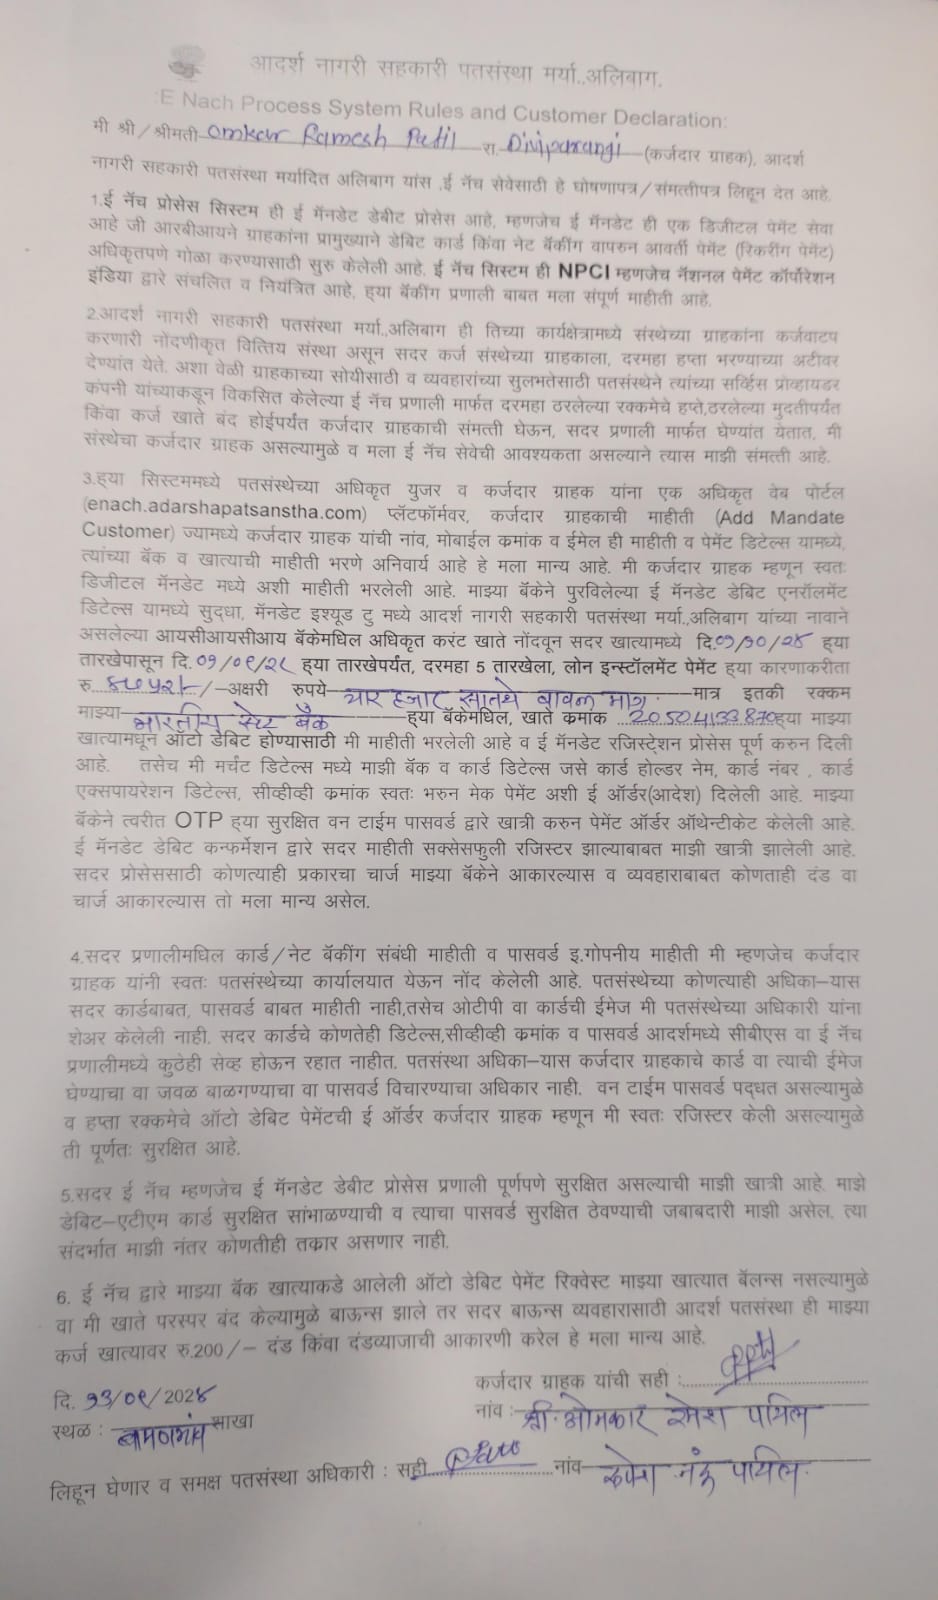 आदर्श नागरी सहकारी पतसंस्था मर्या.,अलिबाग.
:E Nach Process System Rules and Customer Declaration:
मी श्री/श्रीमती Omkar Ramesh Patil रा. Diviparangi (कर्जदार ग्राहक), आदर्श
नागरी सहकारी पतसंस्था मर्यादित अलिबाग यांस ,ई नॅच सेवेसाठी हे घोषणापत्र/संमत्तीपत्र लिहून देत आहे.
1.ई नॅच प्रोसेस सिस्टम ही ई मॅनडेट डेबीट प्रोसेस आहे, म्हणजेच ई मॅनडेट ही एक डिजीटल पेमेंट सेवा
आहे जी आरबीआयने ग्राहकांना प्रामुख्याने डेबिट कार्ड किंवा नेट बॅकींग वापरुन आवर्ती पेमेंट (रिकरींग पेमेंट)
अधिकृतपणे गोळा करण्यासाठी सुरु केलेली आहे. ई नॅच सिस्टम ही NPCI म्हणजेच नॅशनल पेमेंट कॉर्पोरेशन
इंडिया द्वारे संचलित व नियंत्रित आहे, ह्या बॅकींग प्रणाली बाबत मला संपूर्ण माहीती आहे.
2.आदर्श नागरी सहकारी पतसंस्था मर्या.,अलिबाग ही तिच्या कार्यक्षेत्रामध्ये संस्थेच्या ग्राहकांना कर्जवाटप
करणारी नोंदणीकृत वित्तिय संस्था असून सदर कर्ज संस्थेच्या ग्राहकाला, दरमहा हप्ता भरण्याच्या अटीवर
देण्यांत येते. अशा वेळी ग्राहकाच्या सोयीसाठी व व्यवहारांच्या सुलभतेसाठी पतसंस्थेने त्यांच्या सर्व्हिस प्रोव्हायडर
कंपनी यांच्याकडून विकसित केलेल्या ई नॅच प्रणाली मार्फत दरमहा ठरलेल्या रक्कमेचे हप्ते,ठरलेल्या मुदतीपर्यंत
किंवा कर्ज खाते बंद होईपर्यंत कर्जदार ग्राहकाची संमत्ती घेऊन, सदर प्रणाली मार्फत घेण्यांत येतात. मी
संस्थेचा कर्जदार ग्राहक असल्यामुळे व मला ई नॅच सेवेची आवश्यकता असल्याने त्यास माझी संमत्ती आहे.
3.ह्या सिस्टममध्ये पतसंस्थेच्या अधिकृत युजर व कर्जदार ग्राहक यांना एक अधिकृत वेब पोर्टल
(enach.adarshapatsanstha.com) प्लॅटफॉर्मवर, कर्जदार ग्राहकाची माहीती (Add Mandate
Customer) ज्यामध्ये कर्जदार ग्राहक यांची नांव, मोबाईल क्रमांक व ईमेल ही माहीती व पेमेंट डिटेल्स यामध्ये,
त्यांच्या बॅक व खात्याची माहीती भरणे अनिवार्य आहे हे मला मान्य आहे. मी कर्जदार ग्राहक म्हणून स्वतः
डिजीटल मॅनडेट मध्ये अशी माहीती भरलेली आहे. माझ्या बॅकेने पुरविलेल्या ई मॅनडेट डेबिट एनरॉलमेंट
डिटेल्स यामध्ये सुद्धा, मॅनडेट इश्यूड टु मध्ये आदर्श नागरी सहकारी पतसंस्था मर्या.,अलिबाग यांच्या नावाने
असलेल्या आयसीआयसीआय बॅकेमधिल अधिकृत करंट खाते नोंदवून सदर खात्यामध्ये दि.०१/१०/२४ ह्या
तारखेपासून दि. ०१/०९/२८ ह्या तारखेपर्यंत, दरमहा 5 तारखेला, लोन इन्स्टॉलमेंट पेमेंट ह्या कारणाकरीता
रु. ४७५२/- /-अक्षरी रुपये चार हजार सातशे बावन मात्र मात्र इतकी रक्कम
माझ्या भारतीय स्टेट बँक ह्या बॅकेमधिल, खाते क्रमांक 20504133870 ह्या माझ्या
खात्यामधून ऑटो डेबिट होण्यासाठी मी माहीती भरलेली आहे व ई मॅनडेट रजिस्ट्रेशन प्रोसेस पूर्ण करुन दिली
आहे. तसेच मी मर्चंट डिटेल्स मध्ये माझी बॅक व कार्ड डिटेल्स जसे कार्ड होल्डर नेम, कार्ड नंबर , कार्ड
एक्सपायरेशन डिटेल्स, सीव्हीव्ही क्रमांक स्वतः भरुन मेक पेमेंट अशी ई ऑर्डर(आदेश) दिलेली आहे. माझ्या
बॅकेने त्वरीत OTP ह्या सुरक्षित वन टाईम पासवर्ड द्वारे खात्री करुन पेमेंट ऑर्डर ऑथेन्टीकेट केलेली आहे.
ई मॅनडेट डेबिट कन्फर्मेशन द्वारे सदर माहीती सक्सेसफुली रजिस्टर झाल्याबाबत माझी खात्री झालेली आहे.
सदर प्रोसेससाठी कोणत्याही प्रकारचा चार्ज माझ्या बॅकेने आकारल्यास व व्यवहाराबाबत कोणताही दंड वा
चार्ज आकारल्यास तो मला मान्य असेल.
4.सदर प्रणालीमधिल कार्ड/नेट बॅकींग संबंधी माहीती व पासवर्ड इ.गोपनीय माहीती मी म्हणजेच कर्जदार
ग्राहक यांनी स्वतः पतसंस्थेच्या कार्यालयात येऊन नोंद केलेली आहे. पतसंस्थेच्या कोणत्याही अधिका–यास
सदर कार्डबाबत, पासवार्ड बाबत माहीती नाही,तसेच ओटीपी वा कार्डची ईमेज मी पतसंस्थेच्या अधिकारी यांना
शेअर केलेली नाही. सदर कार्डचे कोणतेही डिटेल्स,सीव्हीव्ही क्रमांक व पासवर्ड आदर्शमध्ये सीबीएस वा ई नॅच
प्रणालीमध्ये कुठेही सेव्ह होऊन रहात नाहीत. पतसंस्था अधिका–यास कर्जदार ग्राहकाचे कार्ड वा त्याची ईमेज
घेण्याचा वा जवळ बाळगण्याचा वा पासवर्ड विचारण्याचा अधिकार नाही. वन टाईम पासवर्ड पद्धत असल्यामुळे
व हप्ता रक्कमेचे ऑटो डेबिट पेमेंटची ई ऑर्डर कर्जदार ग्राहक म्हणून मी स्वतः रजिस्टर केली असल्यामुळे
ती पूर्णतः सुरक्षित आहे.
5.सदर ई नॅच म्हणजेच ई मॅनडेट डेबीट प्रोसेस प्रणाली पूर्णपणे सुरक्षित असल्याची माझी खात्री आहे. माझे
डेबिट–एटीएम कार्ड सुरक्षित सांभाळण्याची व त्याचा पासवर्ड सुरक्षित ठेवण्याची जबाबदारी माझी असेल. त्या
संदर्भात माझी नंतर कोणतीही तकार असणार नाही.
6. ई नॅच द्वारे माझ्या बॅक खात्याकडे आलेली ऑटो डेबिट पेमेंट रिक्वेस्ट माझ्या खात्यात बॅलन्स नसल्यामुळे
वा मी खाते परस्पर बंद केल्यामुळे बाऊन्स झाले तर सदर बाऊन्स व्यवहारासाठी आदर्श पतसंस्था ही माझ्या
कर्ज खात्यावर रु.200/– दंड किंवा दंडव्याजाची आकारणी करेल हे मला मान्य आहे.
कर्जदार ग्राहक यांची सही :
दि. १३/०९/2024
नांव :- श्री. ओमकार रमेश पाटिल
स्थळ : बामणगांव शाखा
लिहून घेणार व समक्ष पतसंस्था अधिकारी : सही नांव पाटिल